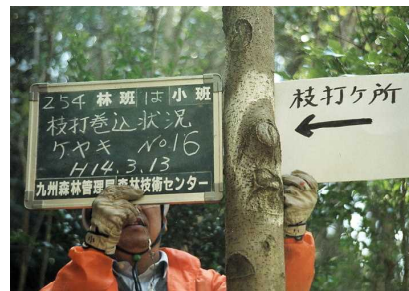 254 林班 は 小班
枝打巻込状況
ケヤキ No16
H14.3.13
九州森林管理局森林技術センター
枝打ケ所
←